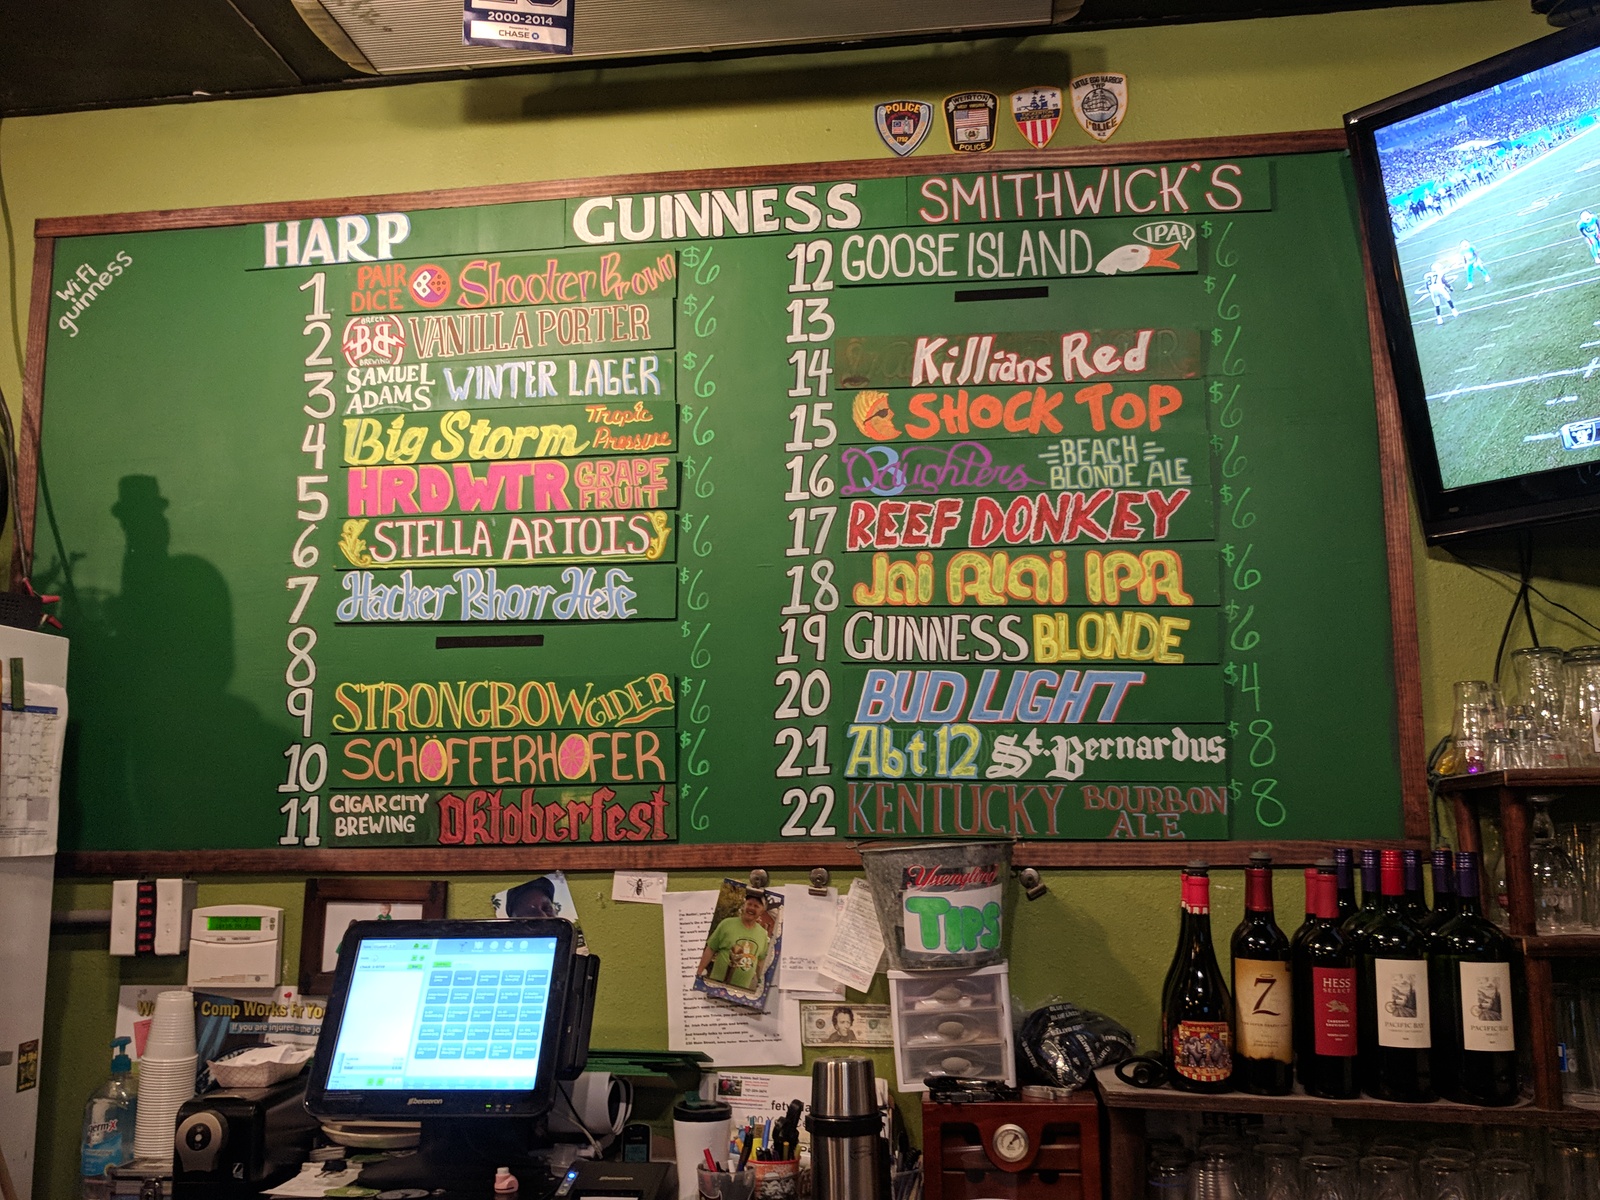 2000-2014
CHASE
POLICE
WEIRTON
POLICE
LITTLE EGG HARBOR
TWP
POLICE
WiFi
guinness
HARP
GUINNESS
SMITHWICK'S
1 PAIR DICE Shooter Brown $6
2 BRECK BB BREWING VANILLA PORTER $6
3 SAMUEL ADAMS WINTER LAGER $6
4 Big Storm Tropic Pressure $6
5 HRDWTR GRAPE FRUIT $6
6 STELLA ARTOIS $6
7 Hacker Pshorr Hefe $6
8 $6
9 STRONGBOW CIDER $6
10 SCHÖFFERHOFER $6
11 CIGAR CITY BREWING Oktoberfest $6
12 GOOSE ISLAND IPA! $6
13 $6
14 Killians Red $6
15 SHOCK TOP $6
16 3 Daughters BEACH BLONDE ALE $6
17 REEF DONKEY $6
18 Jai Alai IPA $6
19 GUINNESS BLONDE $6
20 BUD LIGHT $4
21 Abt 12 St. Bernardus $8
22 KENTUCKY BOURBON ALE $8
Yuengling
TIPS
Comp Works For You
If you are injured
germ-X
Z
HESS
SELECT
PACIFIC BAY
PACIFIC BAY